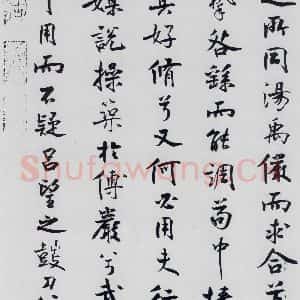 之所同湯禹儼而求合兮
摯咎繇而能調苟中情
其好脩兮又何必用夫行
媒說操築於傅巖兮武
丁用而不疑呂望之鼓刀
Shufawang.Cn